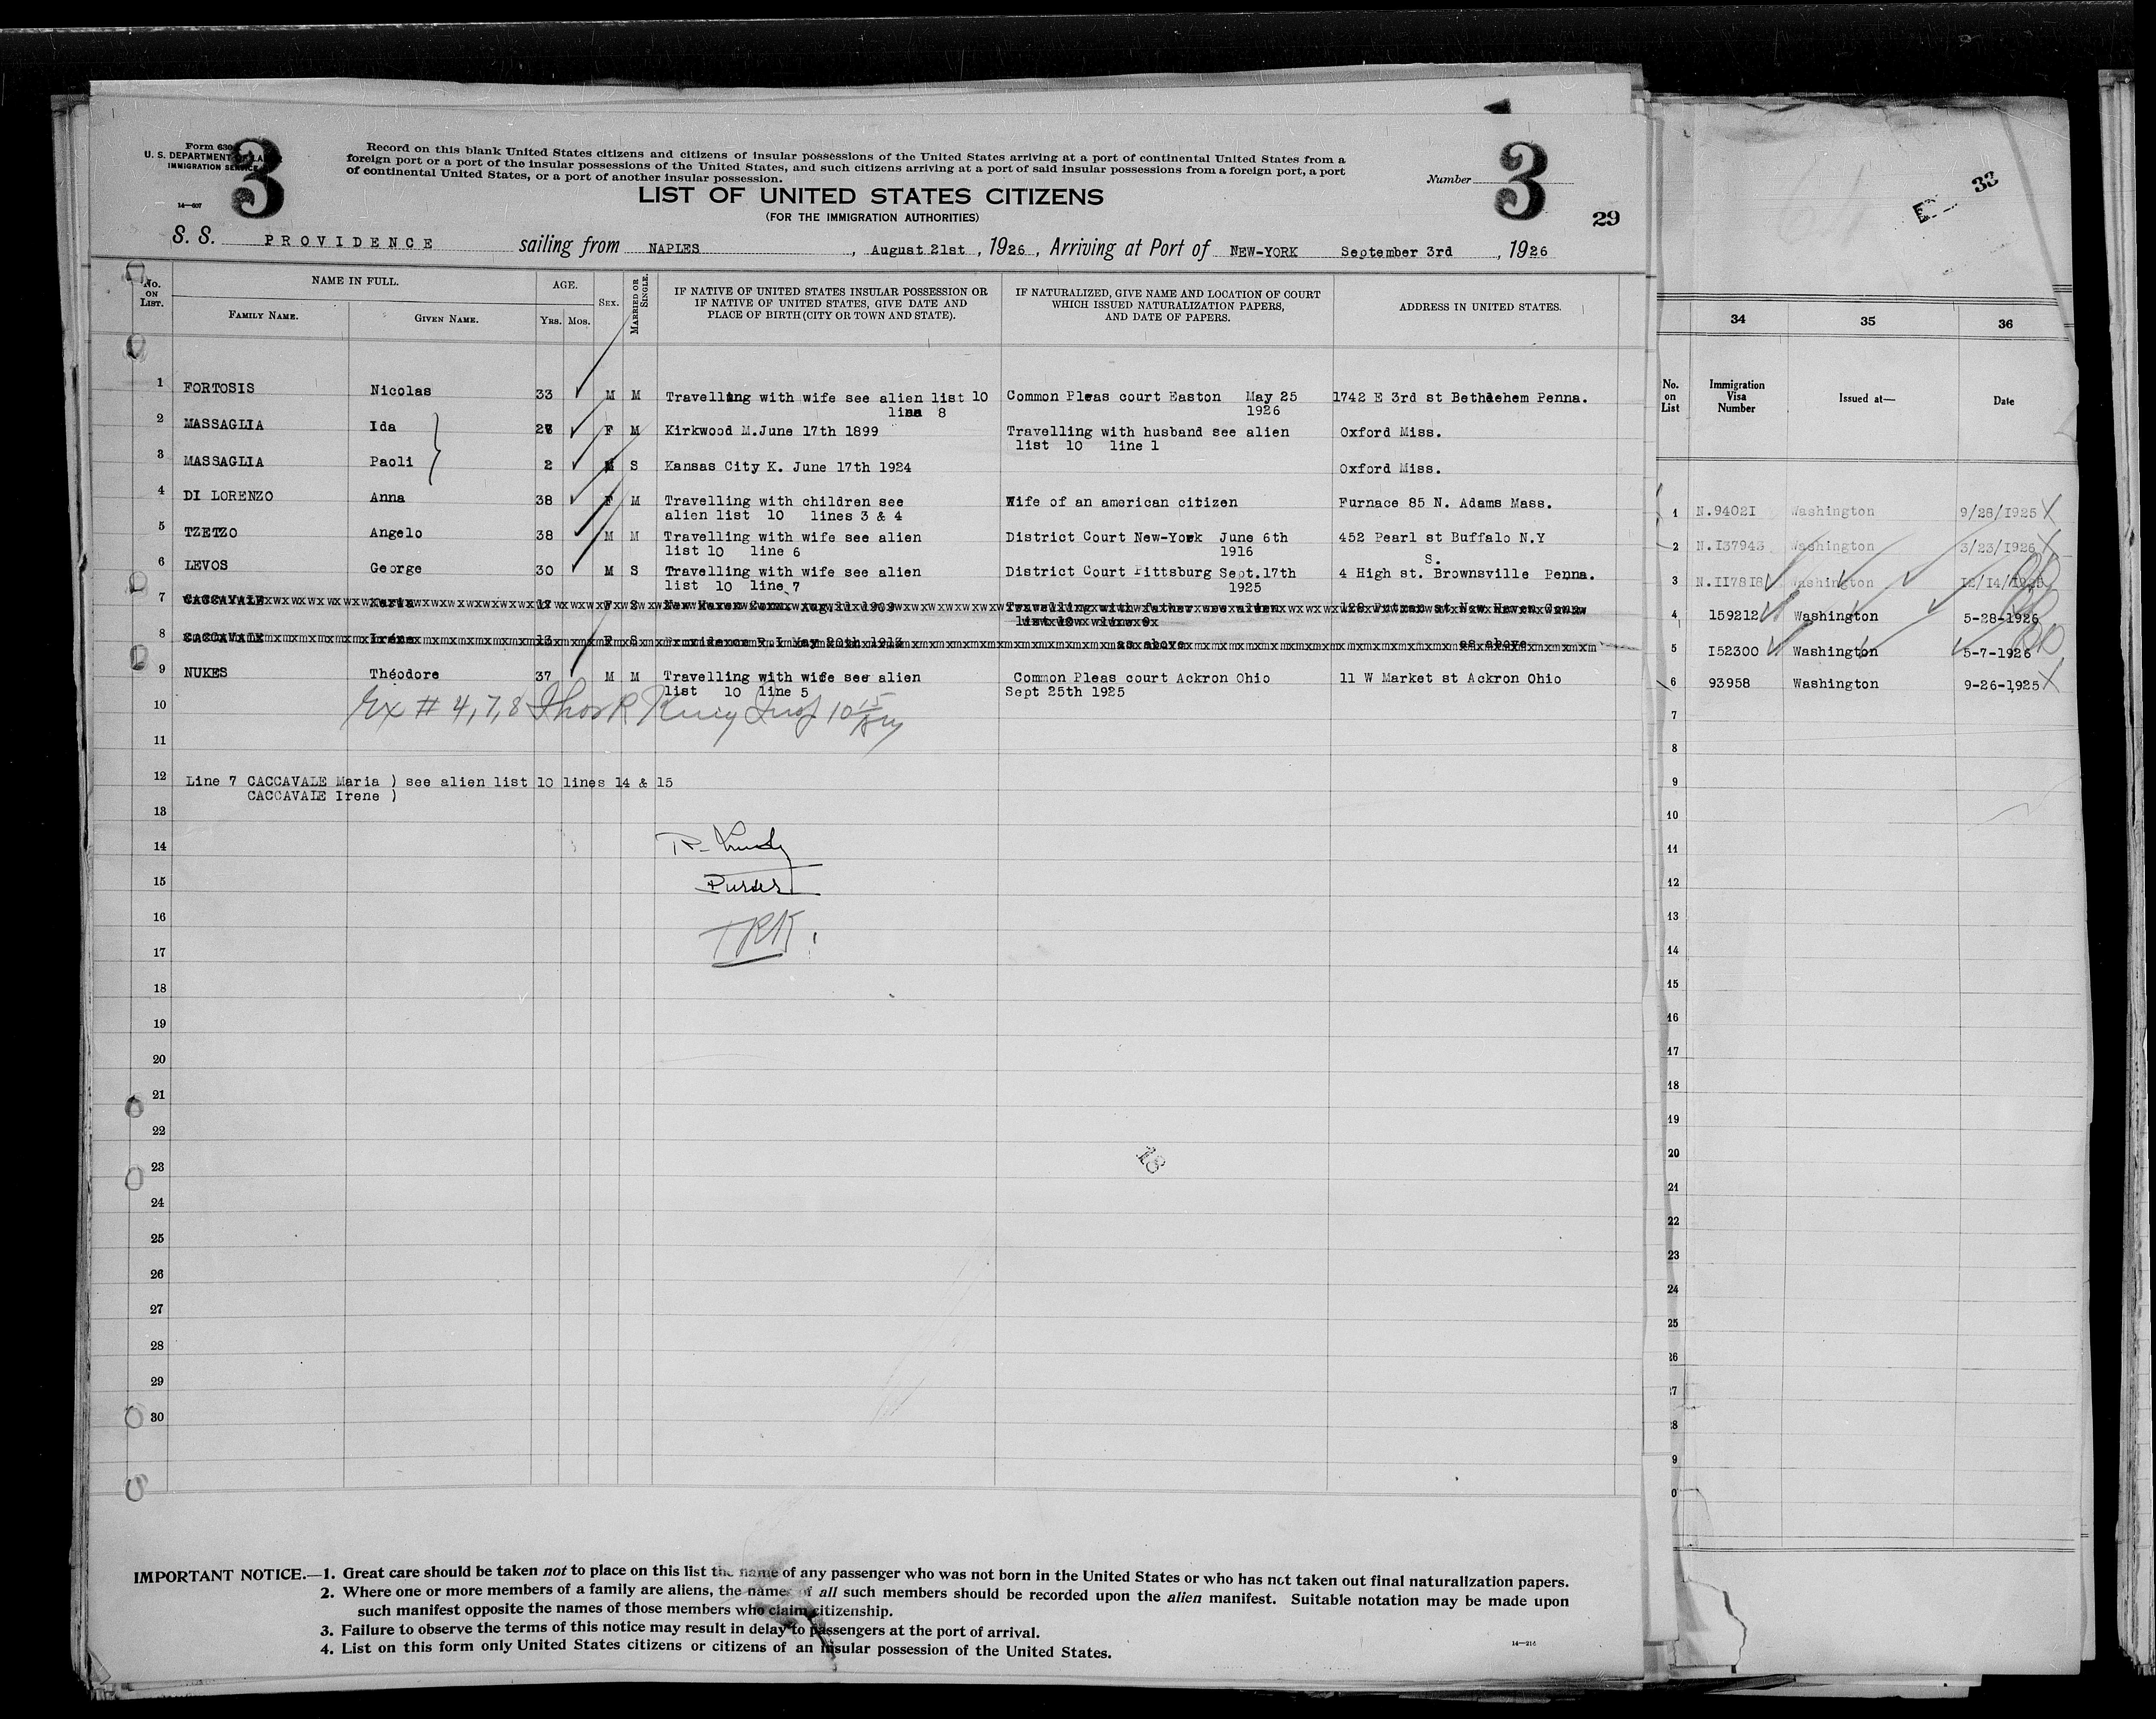 Form 630
U. S. DEPARTMENT OF LABOR
IMMIGRATION SERVICE
14—607
3
Record on this blank United States citizens and citizens of insular possessions of the United States arriving at a port of continental United States from a
foreign port or a port of the insular possessions of the United States, and such citizens arriving at a port of said insular possessions from a foreign port, a port
of continental United States, or a port of another insular possession.
Number 3
LIST OF UNITED STATES CITIZENS
(FOR THE IMMIGRATION AUTHORITIES)
29
S. S. PROVIDENCE sailing from NAPLES, August 21st, 1926, Arriving at Port of NEW-YORK September 3rd, 1926
No. ON LIST. NAME IN FULL. FAMILY NAME. GIVEN NAME. AGE. YRS. MOS. SEX. MARRIED OR SINGLE. IF NATIVE OF UNITED STATES INSULAR POSSESSION OR IF NATIVE OF UNITED STATES, GIVE DATE AND PLACE OF BIRTH (CITY OR TOWN AND STATE). IF NATURALIZED, GIVE NAME AND LOCATION OF COURT WHICH ISSUED NATURALIZATION PAPERS, AND DATE OF PAPERS. ADDRESS IN UNITED STATES.
1 FORTOSIS Nicolas 33 M M Travelling with wife see alien list 10 Common Pleas court Easton May 25 1742 E 3rd st Bethlehem Penna.
line 8 1926
2 MASSAGLIA Ida F M Kirkwood M.June 17th 1899 Travelling with husband see alien Oxford Miss.
list 10 line 1
3 MASSAGLIA Paoli 2 M S Kansas City K. June 17th 1924 Oxford Miss.
4 DI LORENZO Anna 38 F M Travelling with children see Wife of an american citizen Furnace 85 N. Adams Mass.
alien list 10 lines 3 & 4
5 TZETZO Angelo 38 M M Travelling with wife see alien District Court New-York June 6th 452 Pearl st Buffalo N.Y
list 10 line 6 1916
S.
6 LEVOS George 30 M S Travelling with wife see alien District Court Pittsburg Sept.17th 4 High st. Brownsville Penna.
list 10 line 7 1925
7 CACCAVALE Maria 17 F S New Haven Conn. Aug 11 1909 Travelling with father see alien 128 Putman st New Haven Conn
list 10 line 9
8 CACCAVALE Iréne 13 F S Providence R.I May 20th 1913 as above as above
9 NUKES Théodore 37 M M Travelling with wife see alien Common Pleas court Ackron Ohio 11 W Market st Ackron Ohio
list 10 line 5 Sept 25th 1925
10 Ex # 4, 7, 8 Thos R King Insp 10 15 Am
11
12 Line 7 CACCAVALE Maria ) see alien list 10 lines 14 & 15
CACCAVALE Irene )
13
14
15 Purser
16 TRK
17
18
19
20
21
22
18
23
24
25
26
27
28
29
30
IMPORTANT NOTICE.—1. Great care should be taken not to place on this list the name of any passenger who was not born in the United States or who has not taken out final naturalization papers.
2. Where one or more members of a family are aliens, the names of all such members should be recorded upon the alien manifest. Suitable notation may be made upon
such manifest opposite the names of those members who claim citizenship.
3. Failure to observe the terms of this notice may result in delay to passengers at the port of arrival.
4. List on this form only United States citizens or citizens of an insular possession of the United States.
14—214
33
34 35 36
No. on List Immigration Visa Number Issued at— Date
1 N.94021 Washington 9/28/1925 X
2 N.137943 Washington 3/23/1926 X
3 N.117818 Washington 12/14/1925
4 159212 Washington 5-28-1926
5 152300 Washington 5-7-1926
6 93958 Washington 9-26-1925 X
7
8
9
10
11
12
13
14
15
16
17
18
19
20
21
22
23
24
25
26
27
28
9
0